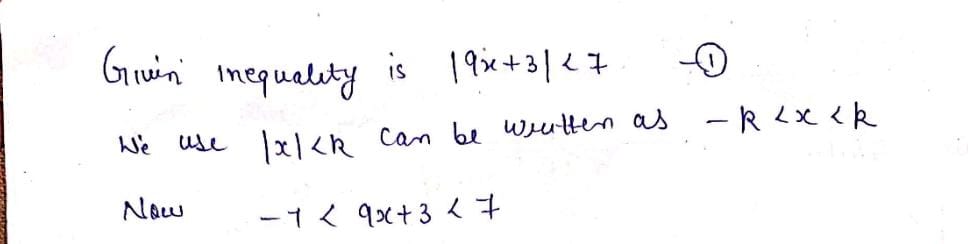 Given inequality is |9x+3| < 7 —①
We use |x|<k can be written as -k <x <k
Now -7 < 9x+3 < 7